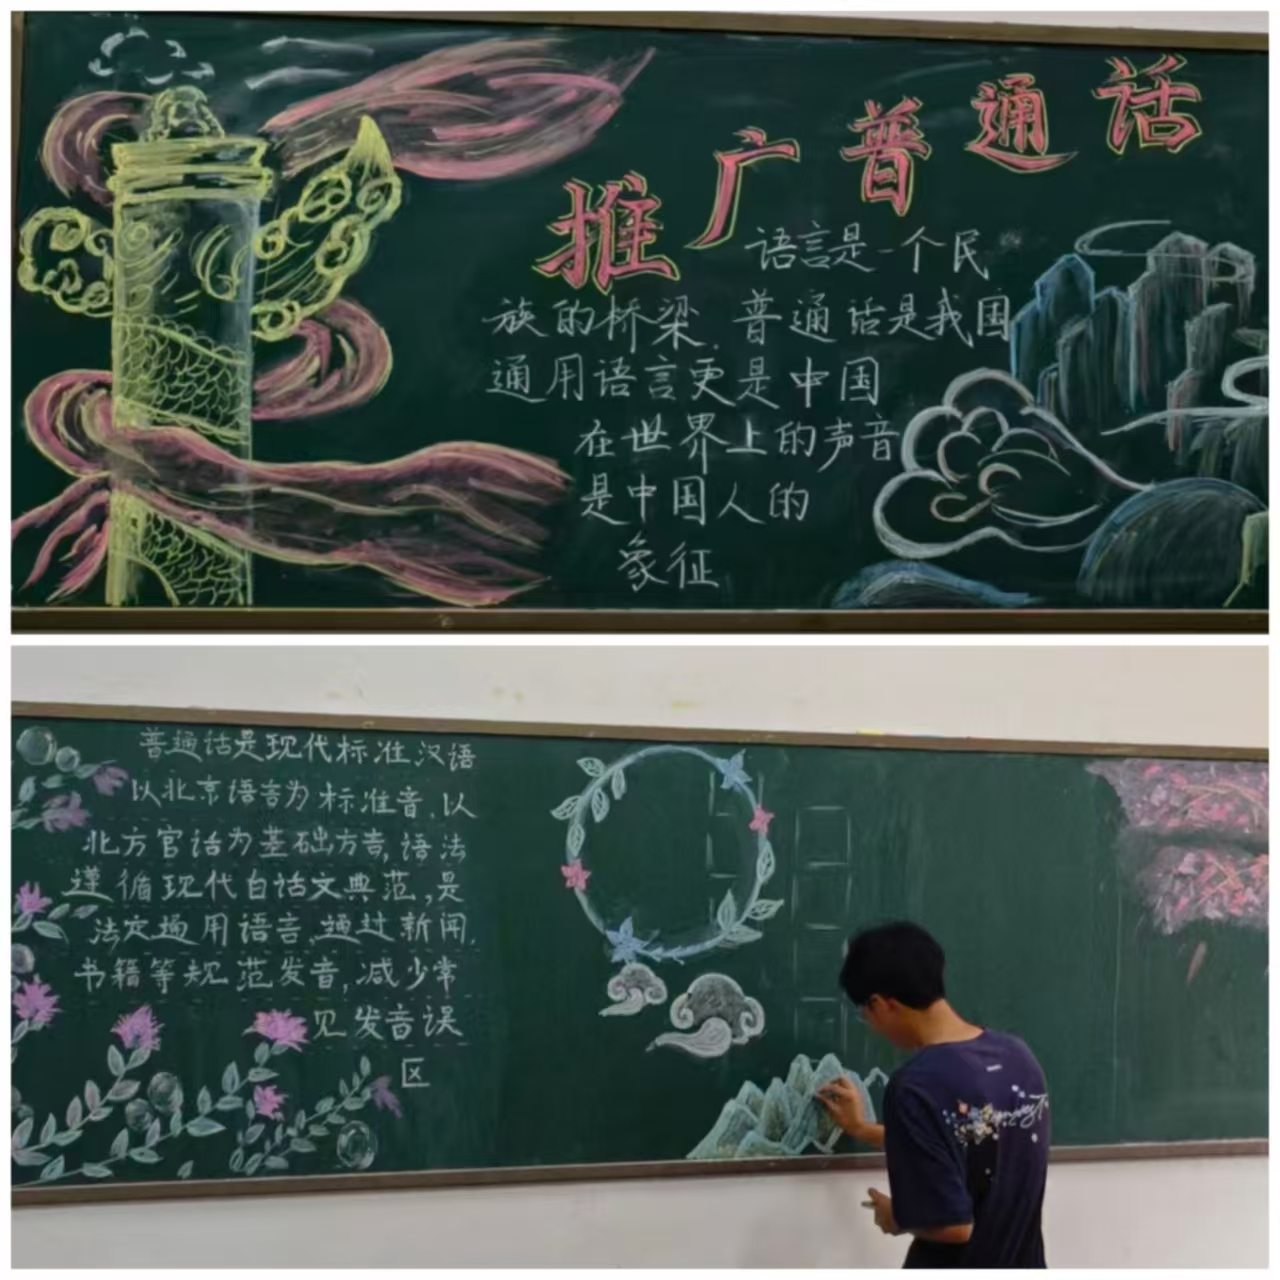 推广普通话
语言是一个民
族的桥梁.普通话是我国
通用语言更是中国
在世界上的声音
是中国人的
象征
普通话是现代标准汉语
以北京语言为标准音,以
北方官话为基础方言,语法
遵循现代白话文典范,是
法定通用语言,通过新闻,
书籍等规范发音,减少常
见发音误
区